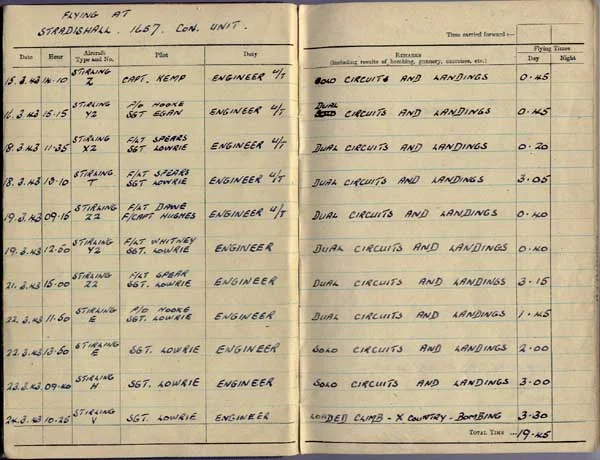 FLYING AT
STRADISHALL. 1657. CON. UNIT.
Time carried forward :—
Date Hour Aircraft Type and No. Pilot Duty REMARKS (including results of bombing, gunnery, exercises, etc.) Flying Times Day Night
15.3.43 14.10 STIRLING Z CAPT. KEMP ENGINEER U/T SOLO CIRCUITS AND LANDINGS 0.45
16.3.43 15.15 STIRLING Y2 P/O NOOKE SGT EGAN ENGINEER U/T DUAL SOLO CIRCUITS AND LANDINGS 0.45
18.3.43 11.35 STIRLING X2 F/LT SPEARS SGT LOWRIE ENGINEER U/T DUAL CIRCUITS AND LANDINGS 0.20
18.3.43 13.10 STIRLING T F/LT SPEARS SGT LOWRIE ENGINEER U/T DUAL CIRCUITS AND LANDINGS 3.05
19.3.43 09.15 STIRLING Z2 F/LT DAWE F/CAPT HUGHES ENGINEER U/T DUAL CIRCUITS AND LANDINGS 0.40
19.3.43 12.50 STIRLING Y2 F/LT WHITNEY SGT. LOWRIE ENGINEER DUAL CIRCUITS AND LANDINGS 0.40
21.3.43 15.00 STIRLING Z2 F/LT SPEAR SGT. LOWRIE ENGINEER DUAL CIRCUITS AND LANDINGS 3.15
22.3.43 11.50 STIRLING E P/O NOOKE SGT. LOWRIE ENGINEER DUAL CIRCUITS AND LANDINGS 1.45
22.3.43 13.50 STIRLING E SGT. LOWRIE ENGINEER SOLO CIRCUITS AND LANDINGS 2.00
23.3.43 09.40 STIRLING H SGT. LOWRIE ENGINEER SOLO CIRCUITS AND LANDINGS 3.00
24.3.43 10.25 STIRLING V SGT. LOWRIE ENGINEER LOADED CLIMB - X COUNTRY - BOMBING 3.30
TOTAL TIME ... 19.45